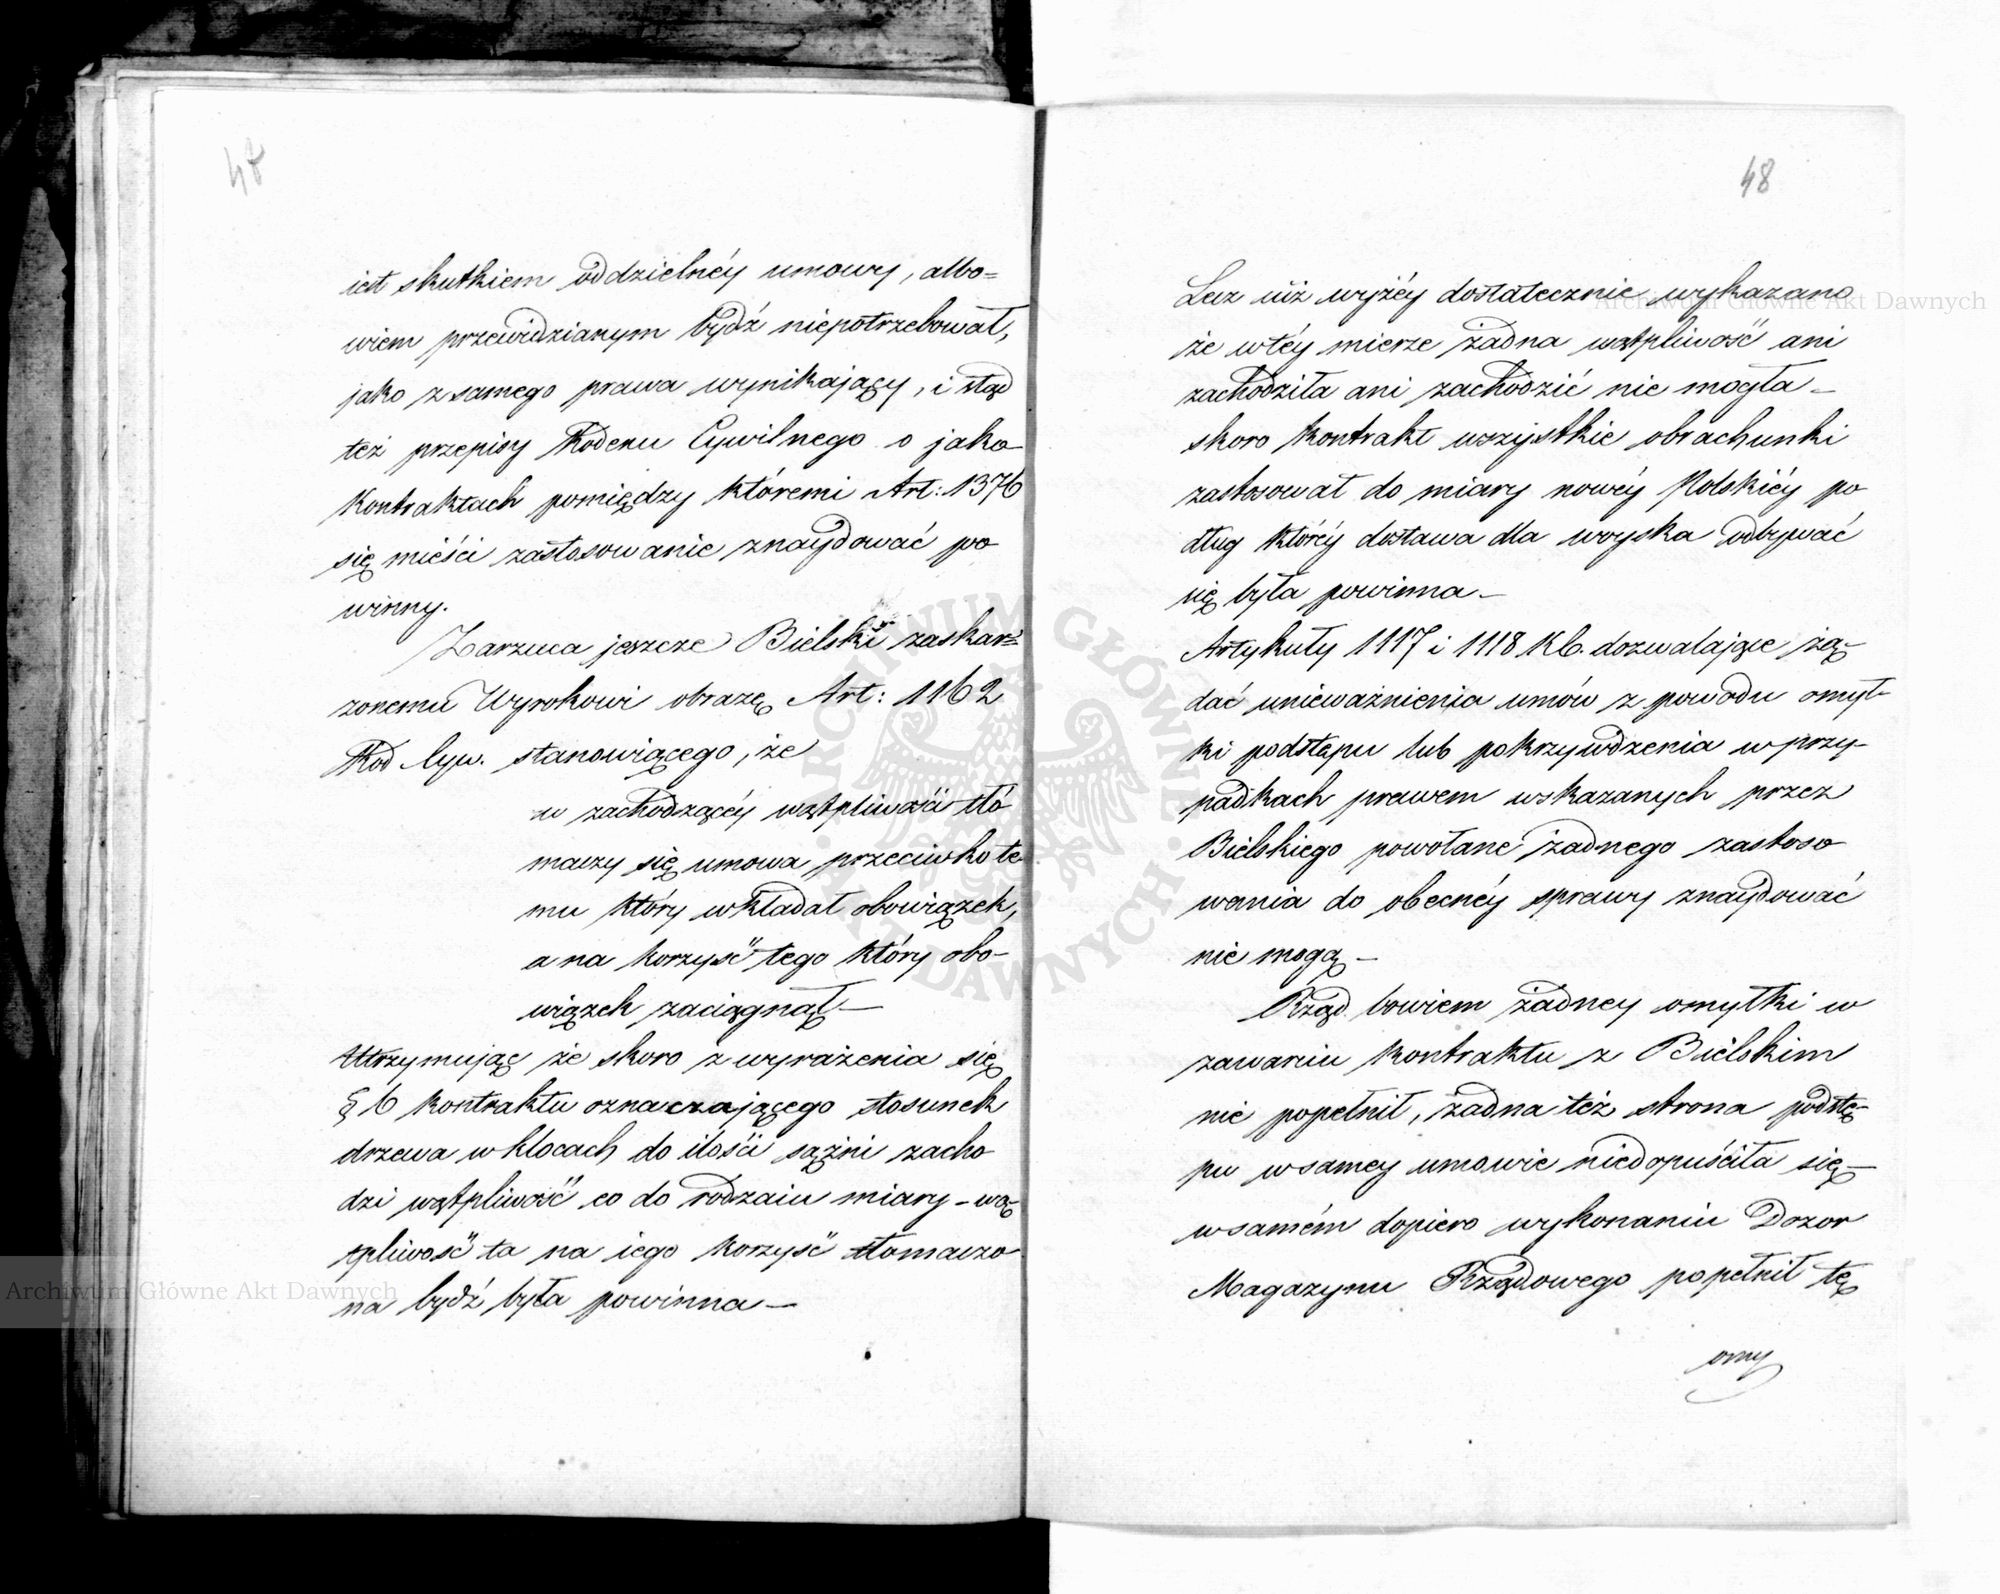 47
iest skutkiem oddzielnéy umowy, albo=
wiem przewidzianym bydź niepotrzebował,
jako z samego prawa wynikający, i stąd
też przepisy Kodexu Cywilnego o jako
Kontraktach pomiędzy któremi Art: 1376
się mieści zastosowanie znaydować po
winny.
Zarzuca jeszcze Bielski zaskar=
żonemu Wyrokowi obrazę Art: 1162
Kod Cyw. stanowiącego, że
w zachodzącéy wątpliwości tłó
maczy się umowa przeciwko te
mu który wkładał obowiązek,
a na korzyść tego który obo-
wiązek zaciągnął—
Utrzymując że skoro z wyrażenia się
§ 6 Kontraktu oznaczającego stosunek
drzewa w klocach do ilości sążni zacho
dzi wątpliwość co do rodzaiu miary - wą
tpliwość ta na iego korzyść tłomaczo
na bydź była powinna—
48
Lecz iuż wyżéy dostatecznie wykazano
że w téy mierze żadna wątpliwość ani
zachodziła ani zachodzić nie mogła—
skoro Kontrakt wszystkie obrachunki
zastosował do miary nowéy Polskiéy po
dług któréy dostawa dla woyska odbywać
się była powinna—
Artykuły 1117 i 1118 KC. dozwalające żą-
dać unieważnienia umów z powodu omył-
ki podstępu lub pokrzywdzenia w przy-
padkach prawem wskazanych przez
Bielskiego powołane żadnego zastoso
wania do obecnéy sprawy znaydować
nie mogą—
Rząd bowiem żadney omyłki w
zawarciu Kontraktu z Bielskim
nie popełnił, żadna też strona podstę-
pu w samey umowie niedopuściła się—
w samém dopiero wykonaniu Dozor
Magazynu Rządowego popełnił tę
omy
Archiwum Główne Akt Dawnych
Archiwum Główne Akt Dawnych
ARCHIWUM GŁÓWNE AKT DAWNYCH